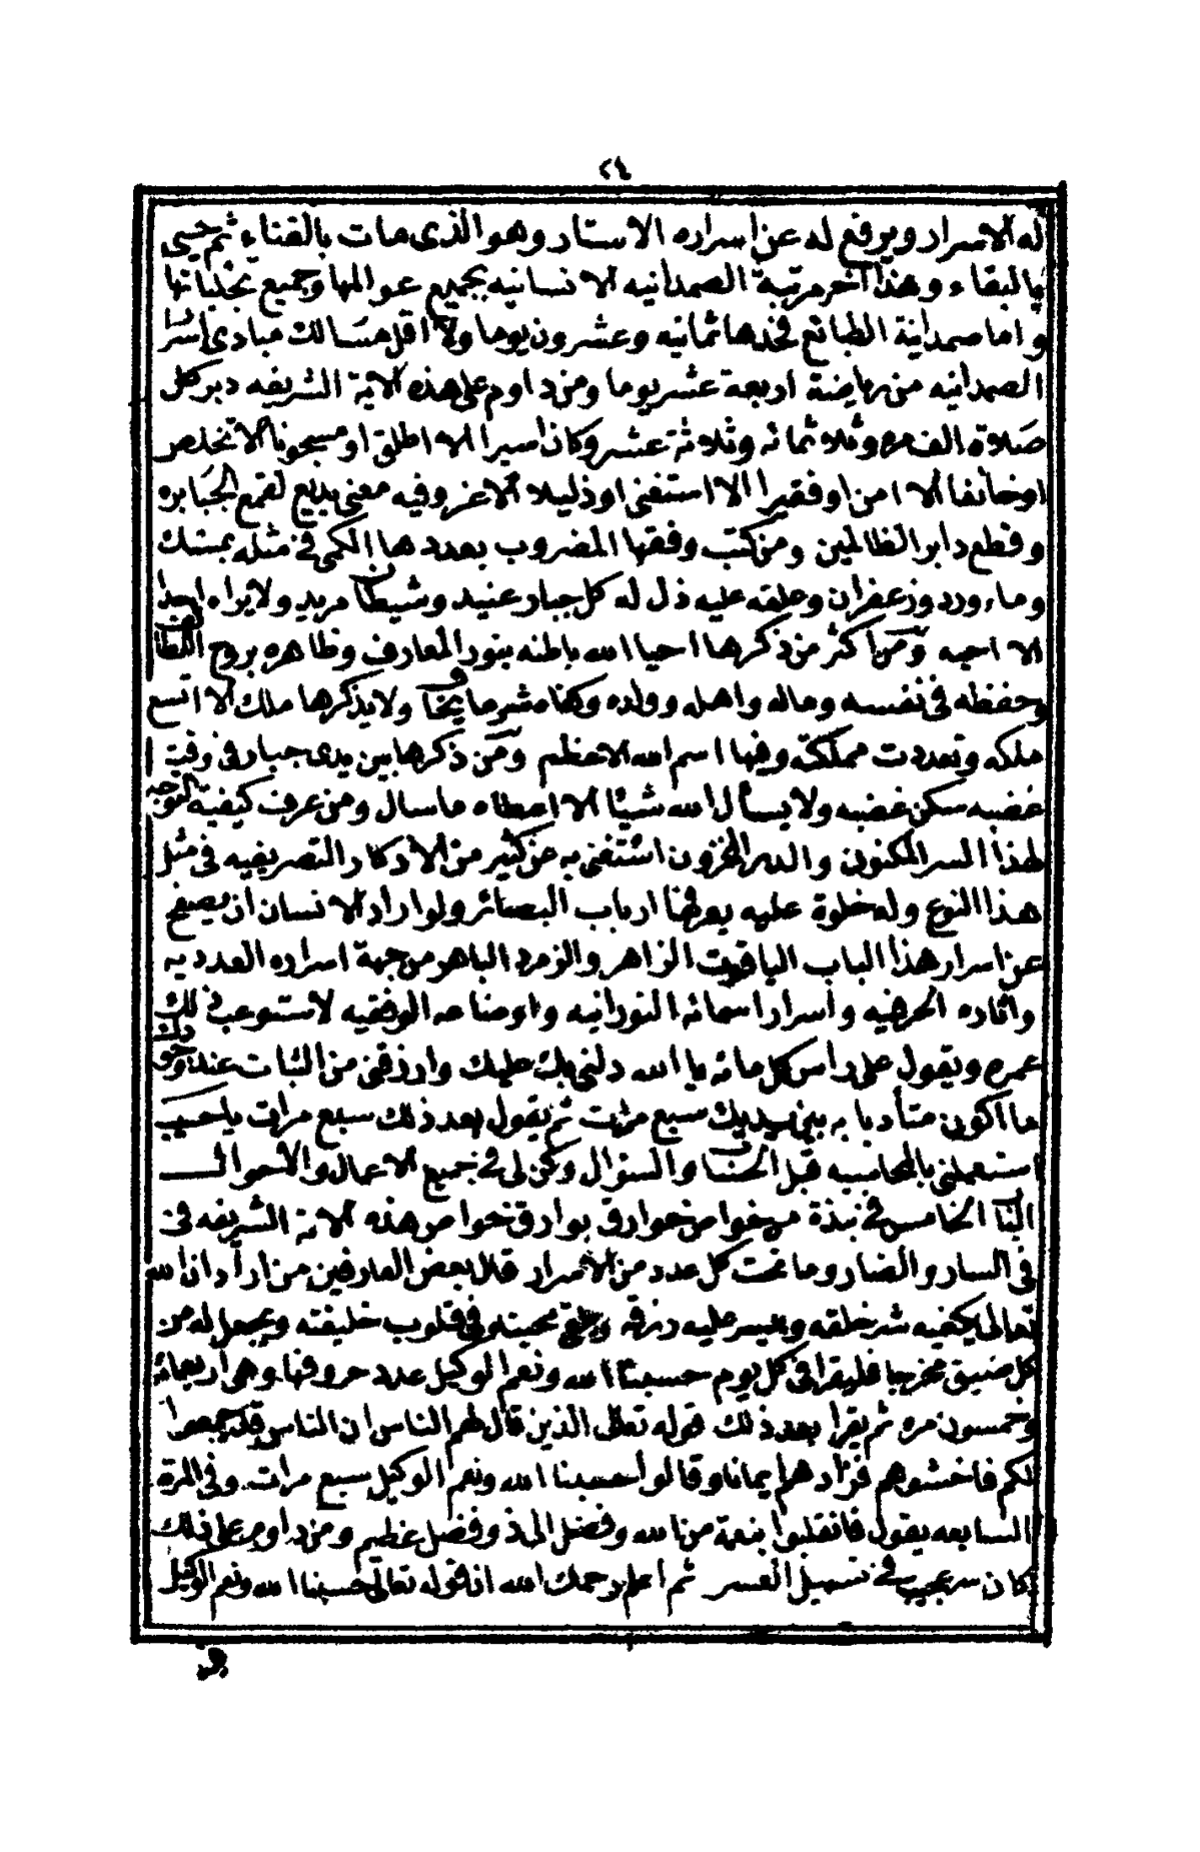 ٢٤
له الاسرار ويرفع له عن اسراره الاستار وهو الذى مات بالفناء ثم حيى
بالبقاء وهذا آخر مرتبة الصمدانيه الانسانيه بجميع عوالمها وجميع تجلياتها
واما صمدانية الطبائع فحدها ثمانيه وعشرون يوما ولا اقل مسالك مبادى اسرار
الصمدانيه من رياضة اربعة عشر يوما ومن داوم على هذه الاية الشريفه دبر كل
صلاة الف مره وثلاثمائه وثلاثة عشر وكان اسيرا الا اطلق او مسجونا الا تخلص
او خائفا الا امن او فقيرا الا استغنى او ذليلا الا عز وفيه معنى بديع لقمع الجبابره
وقطع دابر الظالمين ومن كتب وفقها المضروب بعددها الكمى فى مثله بمسك
وماء ورد وزعفران وعلقه عليه ذل له كل جبار عنيد وشيطان مريد ولا يراه احد
الا احبه ومن اكثر من ذكرها احيا الله باطنه بنور المعارف وظاهره بروح اللطائف
وحفظه فى نفسه وماله واهله وولده وكفاه شر ما يخاف ولا يذكرها ملك الا اتسع
ملكه وتعددت مملكته وفيها اسم الله الاعظم ومن ذكرها بين يدى جبار فى وقت
غضبه سكن غضبه ولا يسأل الله شيئا الا اعطاه ما سال ومن عرف كيفية التوجه
لهذا السر المكنون والدر المخزون استغنى به عن كثير من الأذكار التصريفيه فى مثل
هذا النوع وله خلوة عليه يعرفها ارباب البصائر ولو اراد الانسان ان يصفح
عن اسرار هذا الباب الياقوت الزاهر والزمرد الباهر من جهة اسراره العدديه
واثاره الحرفيه واسرار اسمائه النورانيه واوضاعه الوفقيه لاستوعب ذلك
عمره ويقول على راس كل مائه يا الله دلنى بك عليك وارزقنى من الثبات عند وجودك
ما اكون متأدبا به بين يديك سبع مرات ثم يقول بعد ذلك سبع مرات يا حسيب
استعملنى بالمحاسبه قبل الحساب والسؤال وكن لى فى جميع الاعمال والأحوال
الباب الخامس فى نبذة من خواص خوارق بوارق خواص هذه الاية الشريفه فى
فى السار والضار وما تحت كل عدد من الأسرار قال بعض العارفين من اراد ان الله
تعالى يكفيه شر خلقه وييسر عليه رزقه محبته فى قلوب خليقته ويجعل له من
كل ضيق مخرجا فليقرا فى كل يوم حسبنا الله ونعم الوكيل عدد حروفها وهى اربعمائه
وخمسون مره ثم يقرا بعد ذلك قوله تعالى الذين قال لهم الناس ان الناس قد جمعوا
لكم فاخشوهم فزادهم ايمانا وقالوا حسبنا الله ونعم الوكيل سبع مرات وفى المرة
السابعه يقول فانقلبوا بنعمة من الله وفضل الى ذو فضل عظيم ومن داوم على ذلك
كان سر عجيب فى تسهيل العسر ثم اعلم رحمك الله ان قوله تعالى حسبنا الله ونعم الوكيل